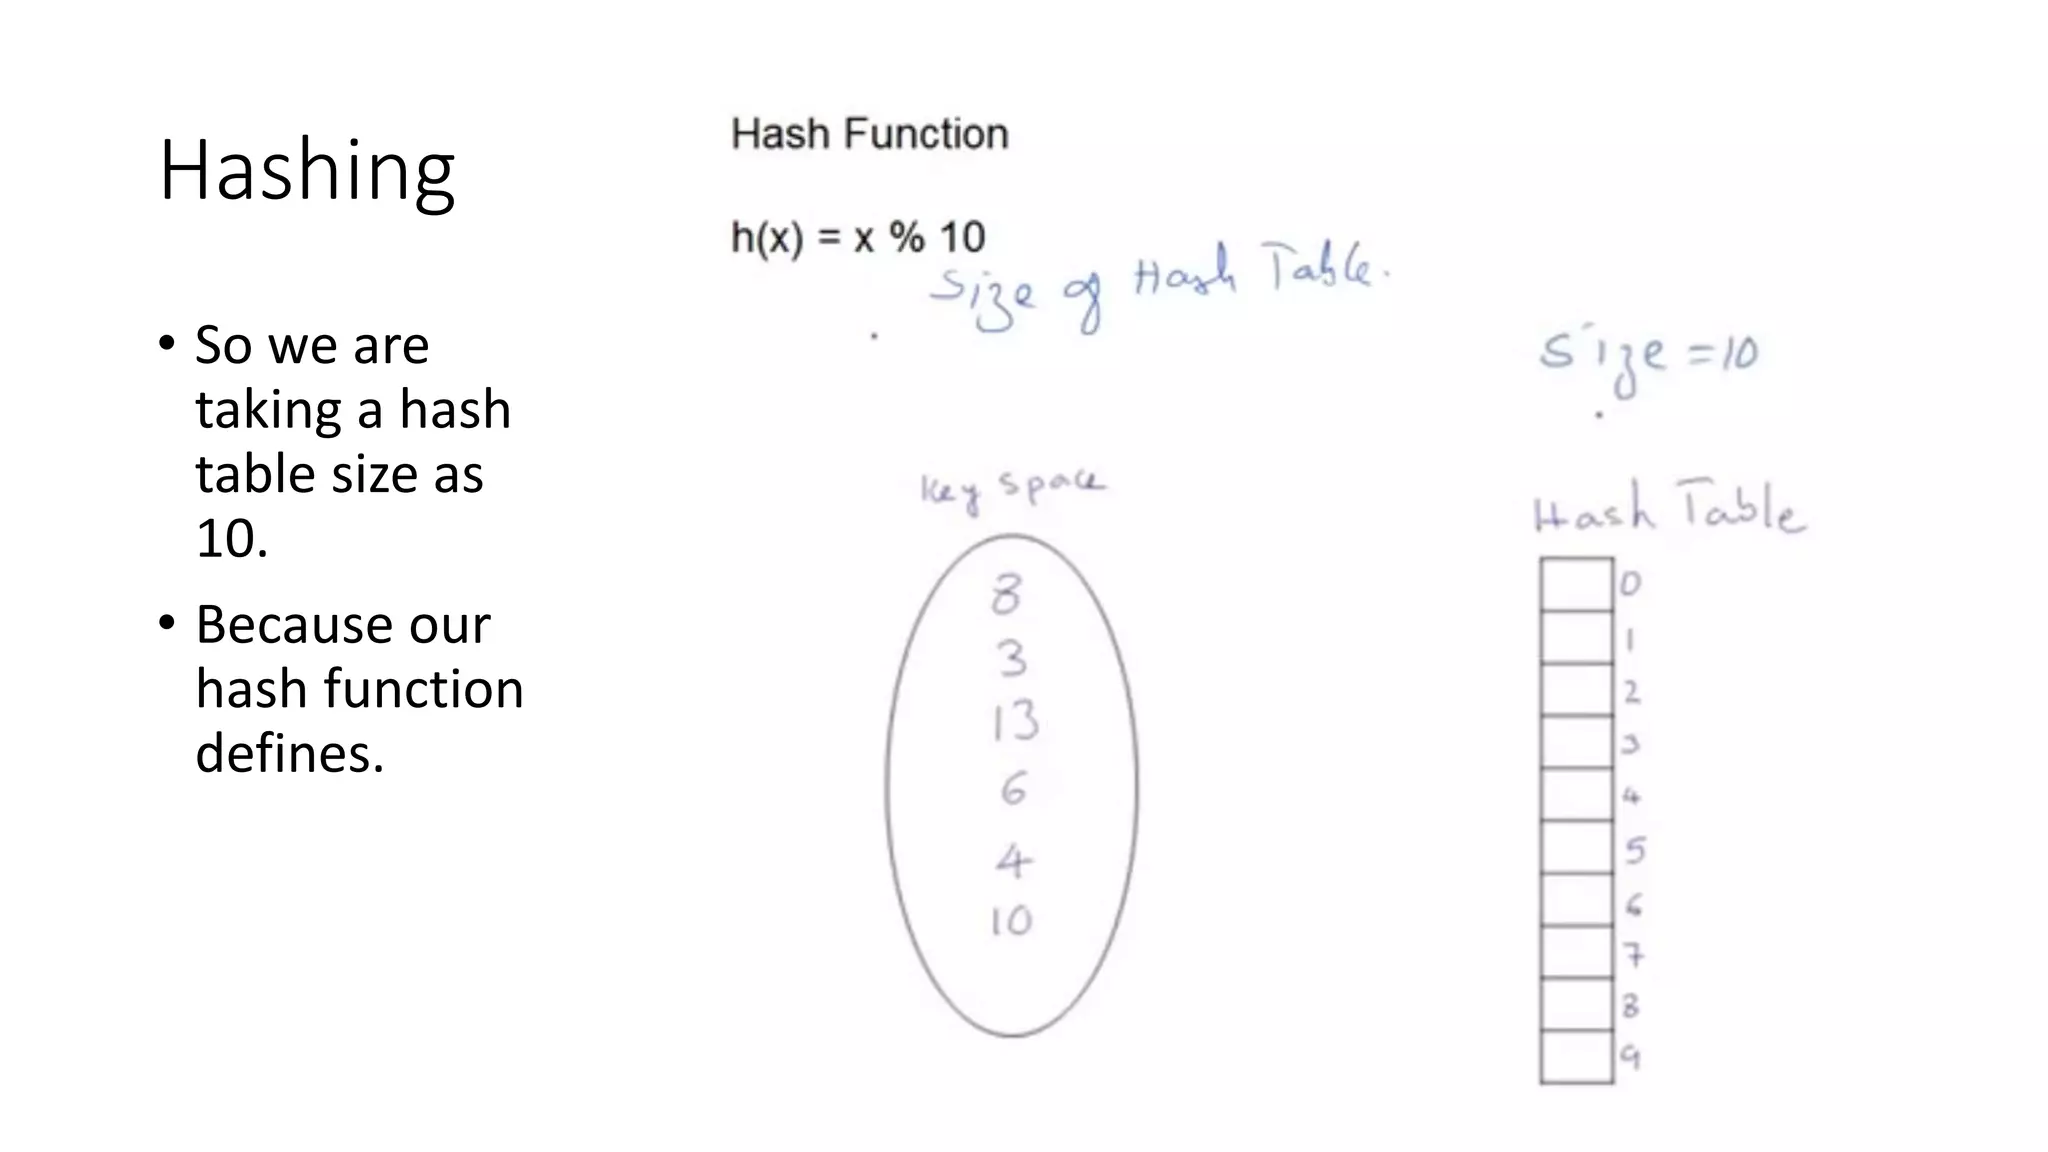 Hashing
• So we are
taking a hash
table size as
10.
• Because our
hash function
defines.
Hash Function
h(x) = x % 10
Size of Hash Table.
Size = 10
Key space
8
3
13
6
4
10
Hash Table
0
1
2
3
4
5
6
7
8
9